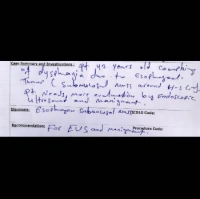 Case Summary and Investigations: Pt 43 years old complaining
of dysphagia due to Esophageal
Tumor (Submucosal mass around
Pt. Needs more evaluation by Endoscopic
Ultrasound and manigment.
Diagnosis: Esophageal Submucosal mass ICD10 Code:
Recommendation: For EUS and manigment. Procedure Code: